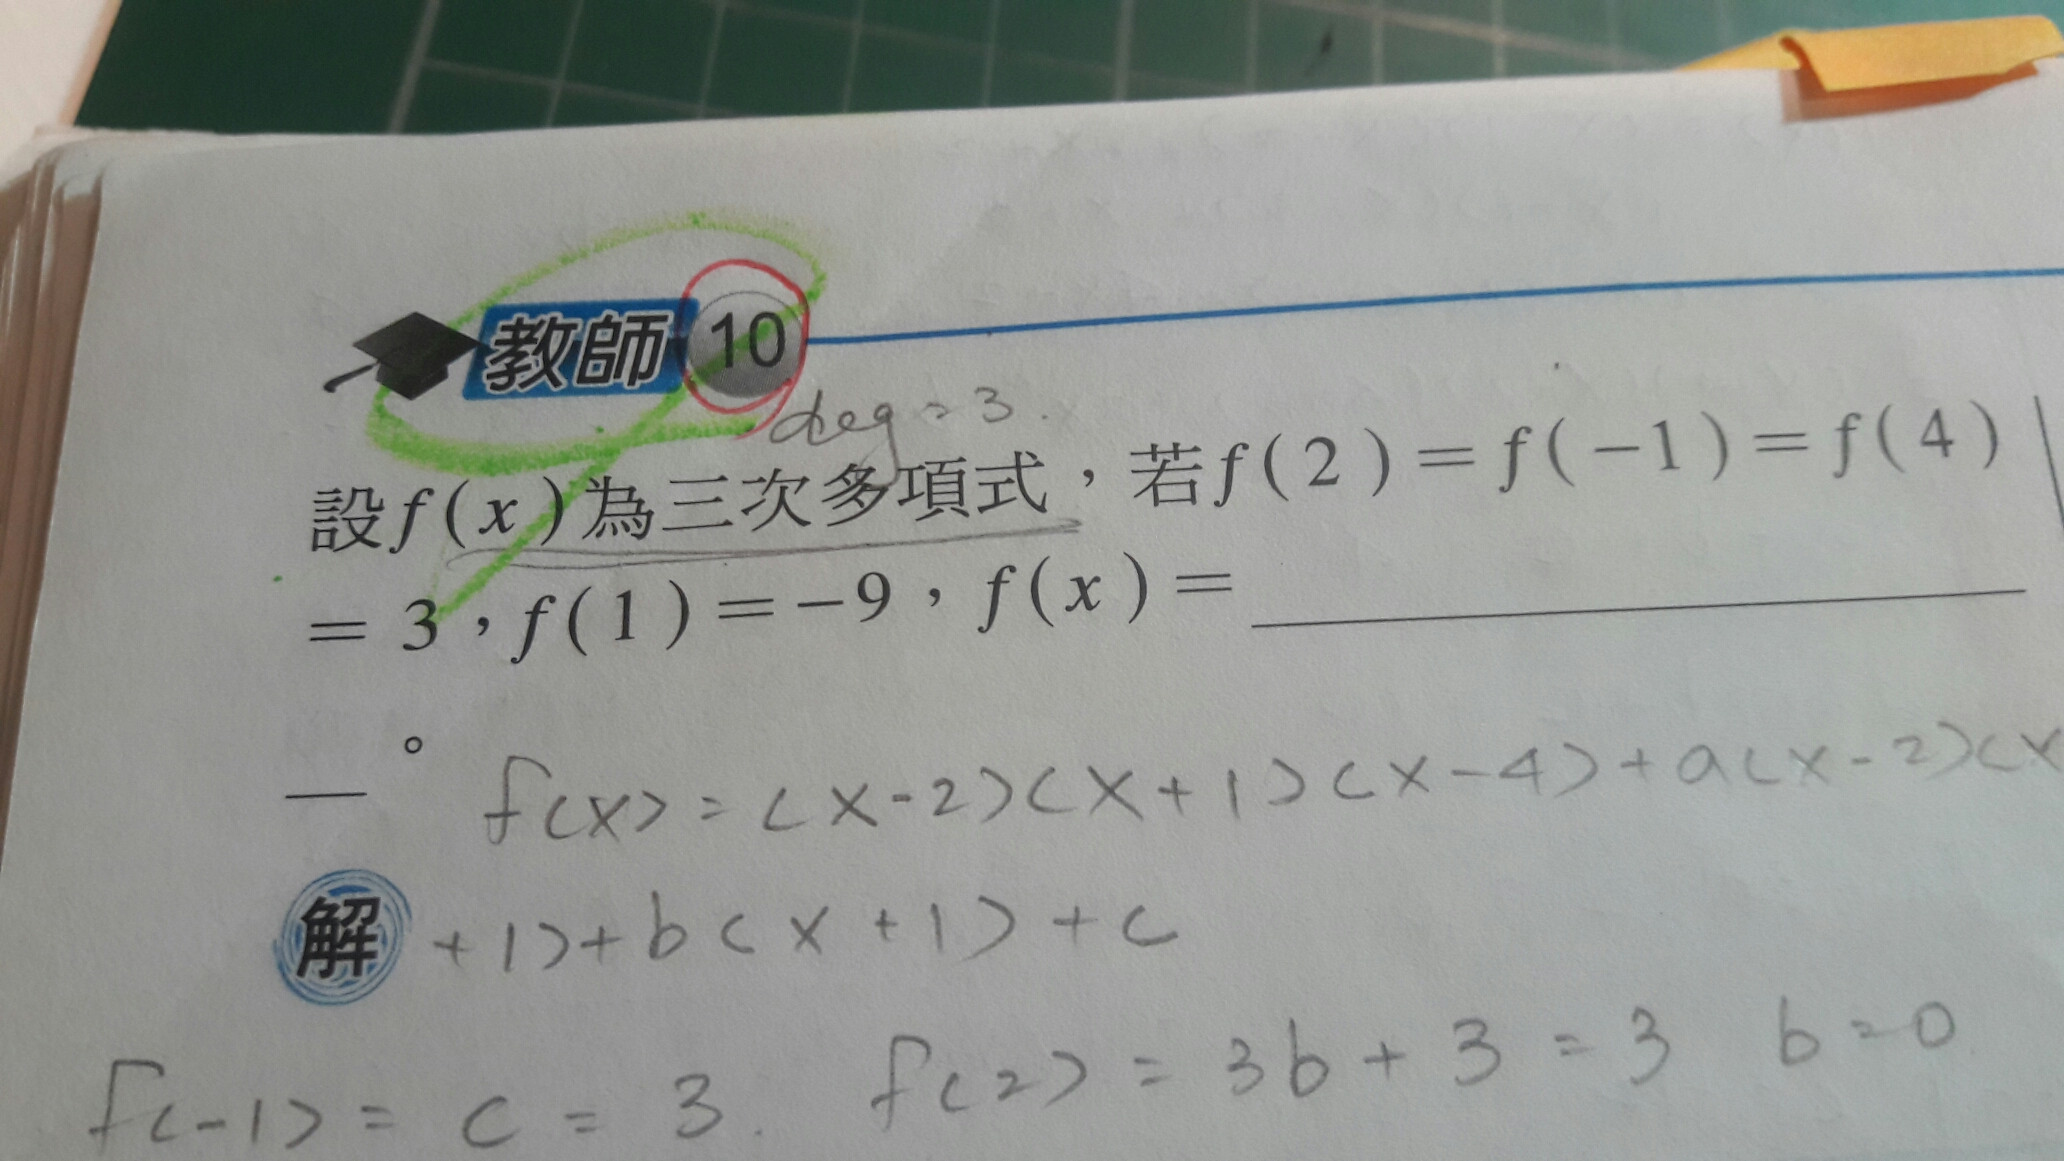 教師 10
deg = 3.
設f(x)為三次多項式，若f(2)=f(-1)=f(4)
=3，f(1)=-9，f(x)=
。
f(x)=(x-2)(x+1)(x-4)+a(x-2)(x
解 +1)+b(x+1)+c
f(-1)=c=3. f(2)=3b+3=3 b=0